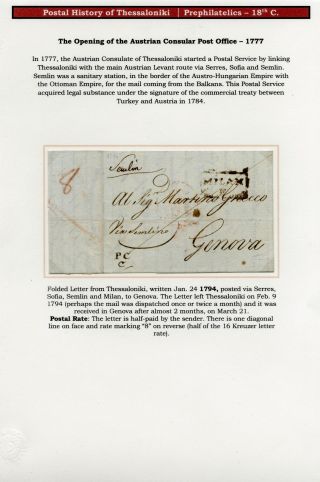 Postal History of Thessaloniki | Prephilatelics – 18th C.
The Opening of the Austrian Consular Post Office – 1777
In 1777, the Austrian Consulate of Thessaloniki started a Postal Service by linking
Thessaloniki with the main Austrian Levant route via Serres, Sofia and Semlin.
Semlin was a sanitary station, in the border of the Austro-Hungarian Empire with
the Ottoman Empire, for the mail coming from the Balkans. This Postal Service
acquired legal substance under the signature of the commercial treaty between
Turkey and Austria in 1784.
8
MILAN
Al Sigr Martino
Via Semlino
Genova
P C
C
Folded Letter from Thessaloniki, written Jan. 24 1794, posted via Serres,
Sofia, Semlin and Milan, to Genova. The Letter left Thessaloniki on Feb. 9
1794 (perhaps the mail was dispatched once or twice a month) and it was
received in Genova after almost 2 months, on March 21.
Postal Rate: The letter is half-paid by the sender. There is one diagonal
line on face and rate marking "8" on reverse (half of the 16 Kreuzer letter
rate).